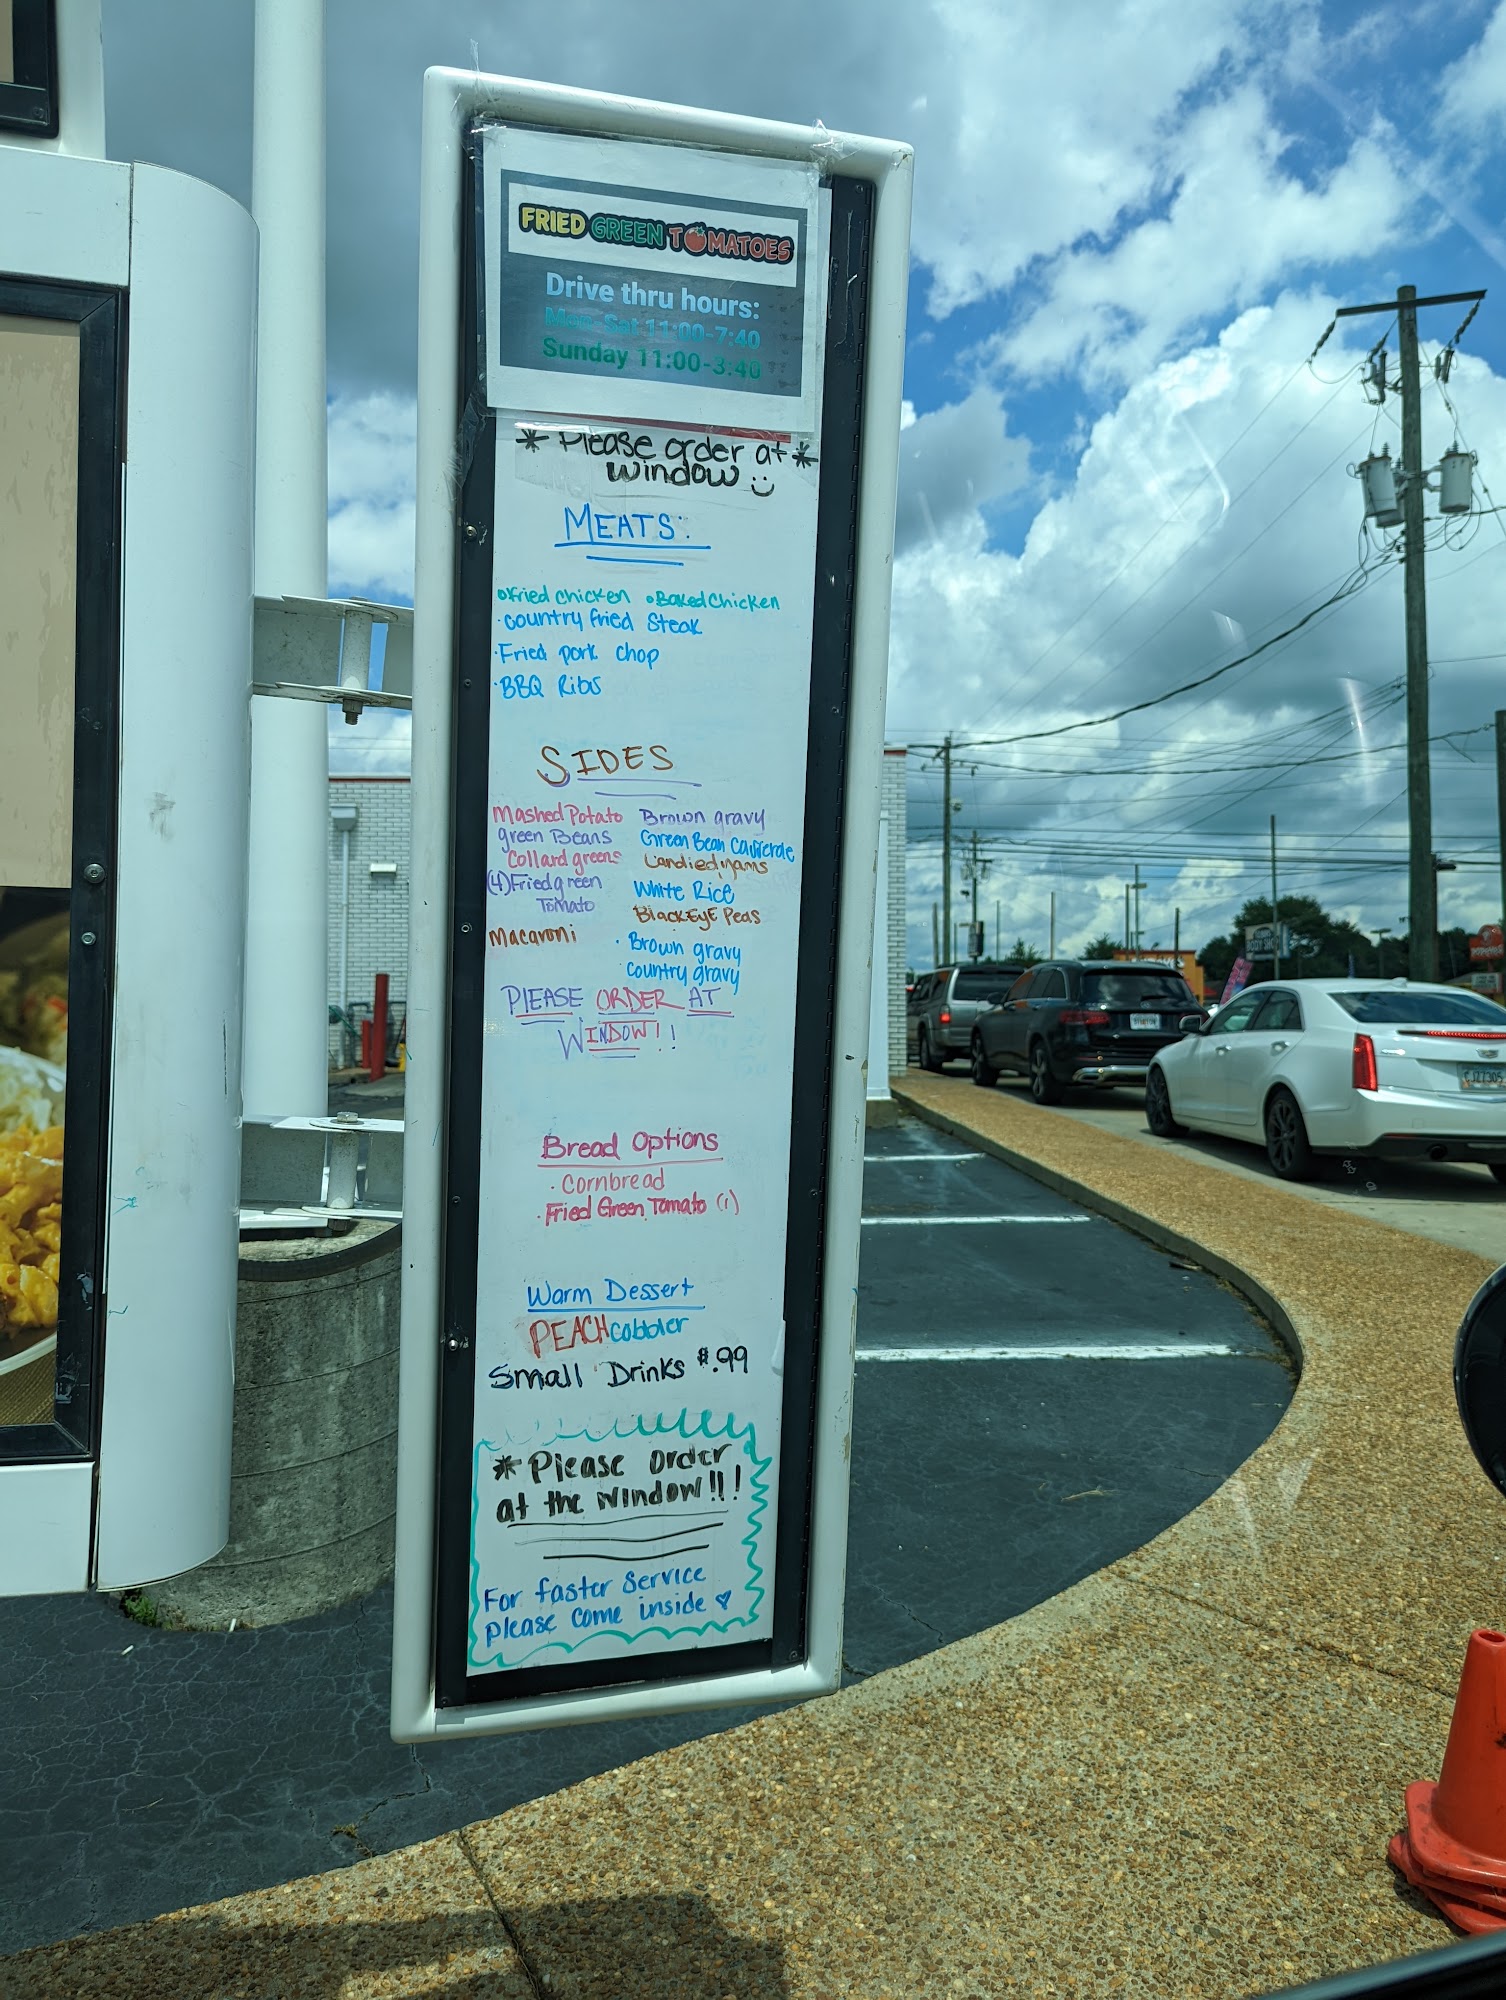 FRIED GREEN TOMATOES
Drive thru hours:
Mon-Sat 11:00-7:40
Sunday 11:00-3:40
* Please order at *
window
MEATS:
Fried chicken
Baked Chicken
Country fried Steak
Fried pork chop
BBQ Ribs
SIDES
Mashed Potato
green Beans
Collard greens
(4) Fried green
Tomato
Macaroni
Brown gravy
Green Bean
Candied yams
White Rice
BlackEyE Peas
Brown gravy
Country gravy
PLEASE ORDER AT
WINDOW!!
Bread Options
Cornbread
Fried Green Tomato (1)
Warm Dessert
PEACH cobbler
Small Drinks $.99
* Please order
at the window!!!
For faster service
please come inside